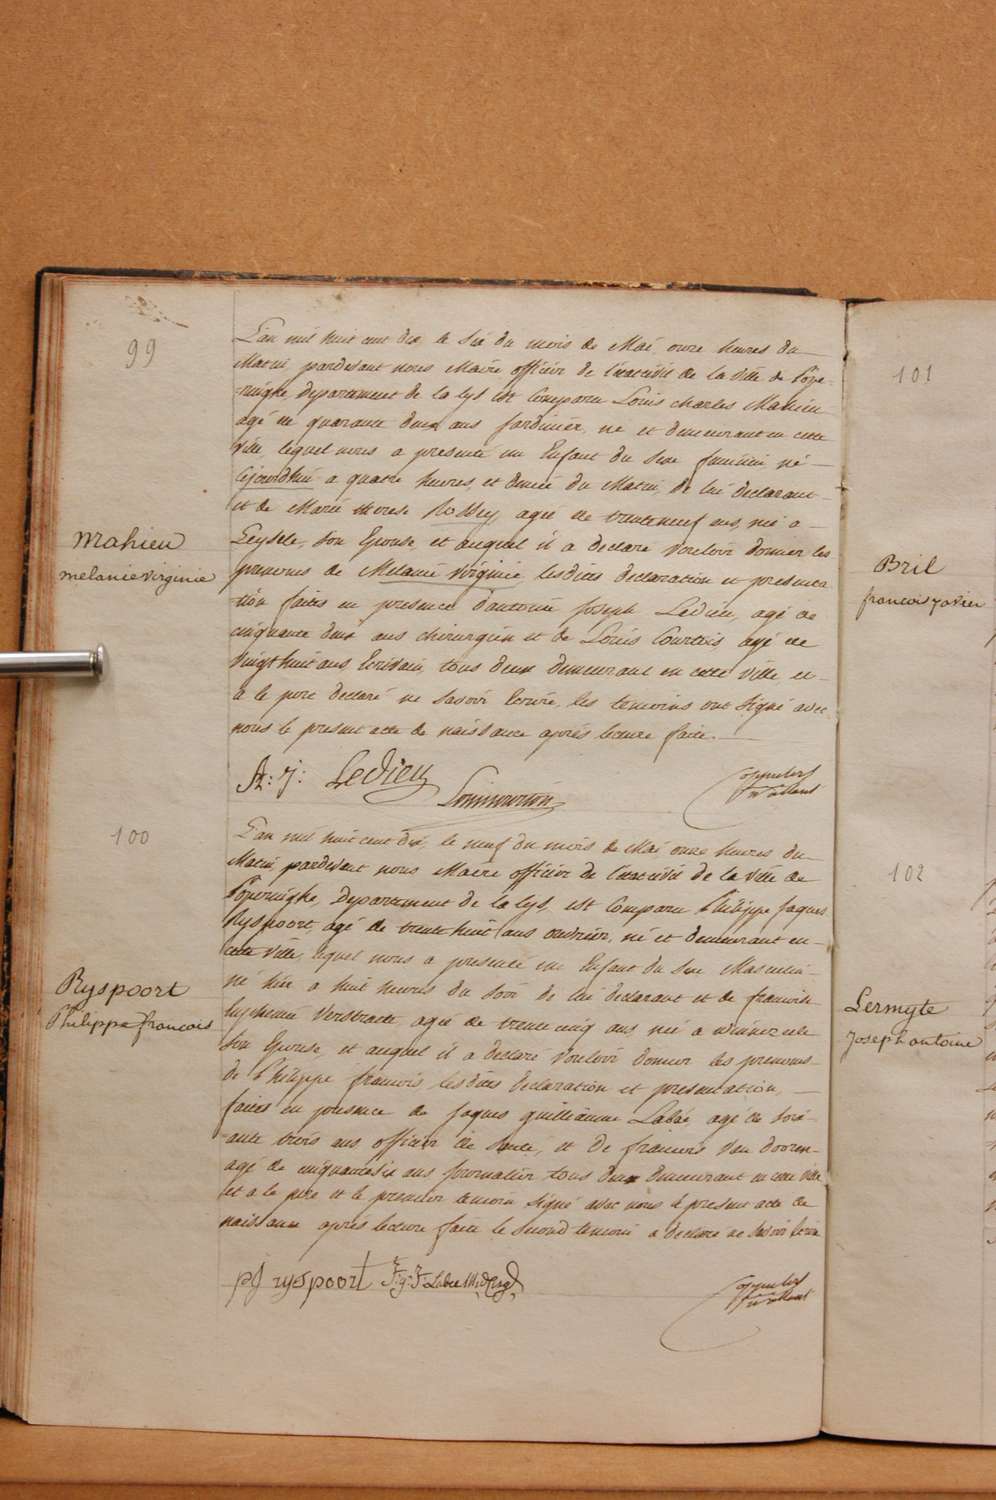 99
Mahieu
melanie virginie
L'an mil huit cent dix le six du mois de Mai onze heures du
Matin pardevant nous Maire officier de l'état civil de la ville de Pope-
-ringhe, departement de la Lys est Comparu Louis Charles Mahieu
agé de quarante deux ans Jardinier, né et demeurant en cette
ville lequel nous a presenté un Enfant du Sexe feminin né
Cejourdhui a quatre heures et demie du Matin, de lui declarant
et de Marie therese agée de trenteneuf ans, née a
Leysele, Son Epouse, et auquel il a declaré vouloir donner les
prenoms de Melanie virginie lesdites declaration et presenta
tion faites en presence d'antoine Joseph Ledieu, agé de
cinquante deux ans chirurgien et de Louis Courtois agé de
vingt huit ans Ecrivain, tous deux demeurant en cette ville, et
a le pere declaré ne Savoir Ecrire, les temoins ont Signé avec
nous le present acte de naissance après lecture faite.
A: J: Ledieu
100
Ryspoort
Philippe francois
L'an mil huit cent dix, le neuf du mois de Mai onze heures du
Matin, pardevant nous Maire officier de l'état civil de la ville de
Poperinghe, Departement de la Lys, est Comparu Philippe Jaques
Ryspoort, agé de trente huit ans ouvrier, né et demeurant en
cette ville, lequel nous a presenté un Enfant du Sexe Masculin
né hier a huit heures du Soir de lui declarant et de francoise
Euphemie Verstraete, agée de trente cinq ans née a winnezeele
Son Epouse, et auquel il a declaré vouloir donner les prenoms
de Philippe francois lesdites declaration et presentation,
faites en presence de Jaques guillianne Labaé, agé de Soix-
ante trois ans officier de Santé, et de francois van dooren
agé de cinquantesix ans Journalier tous deux demeurant en cette ville
et a le pere et le premier temoin Signé avec nous le present acte de
naissance après lecture faite le Second temoin a declaré ne Savoir Ecrire
pJ ryspoort
101
Bril
francois xavier
102
Lermyte
Joseph antoine